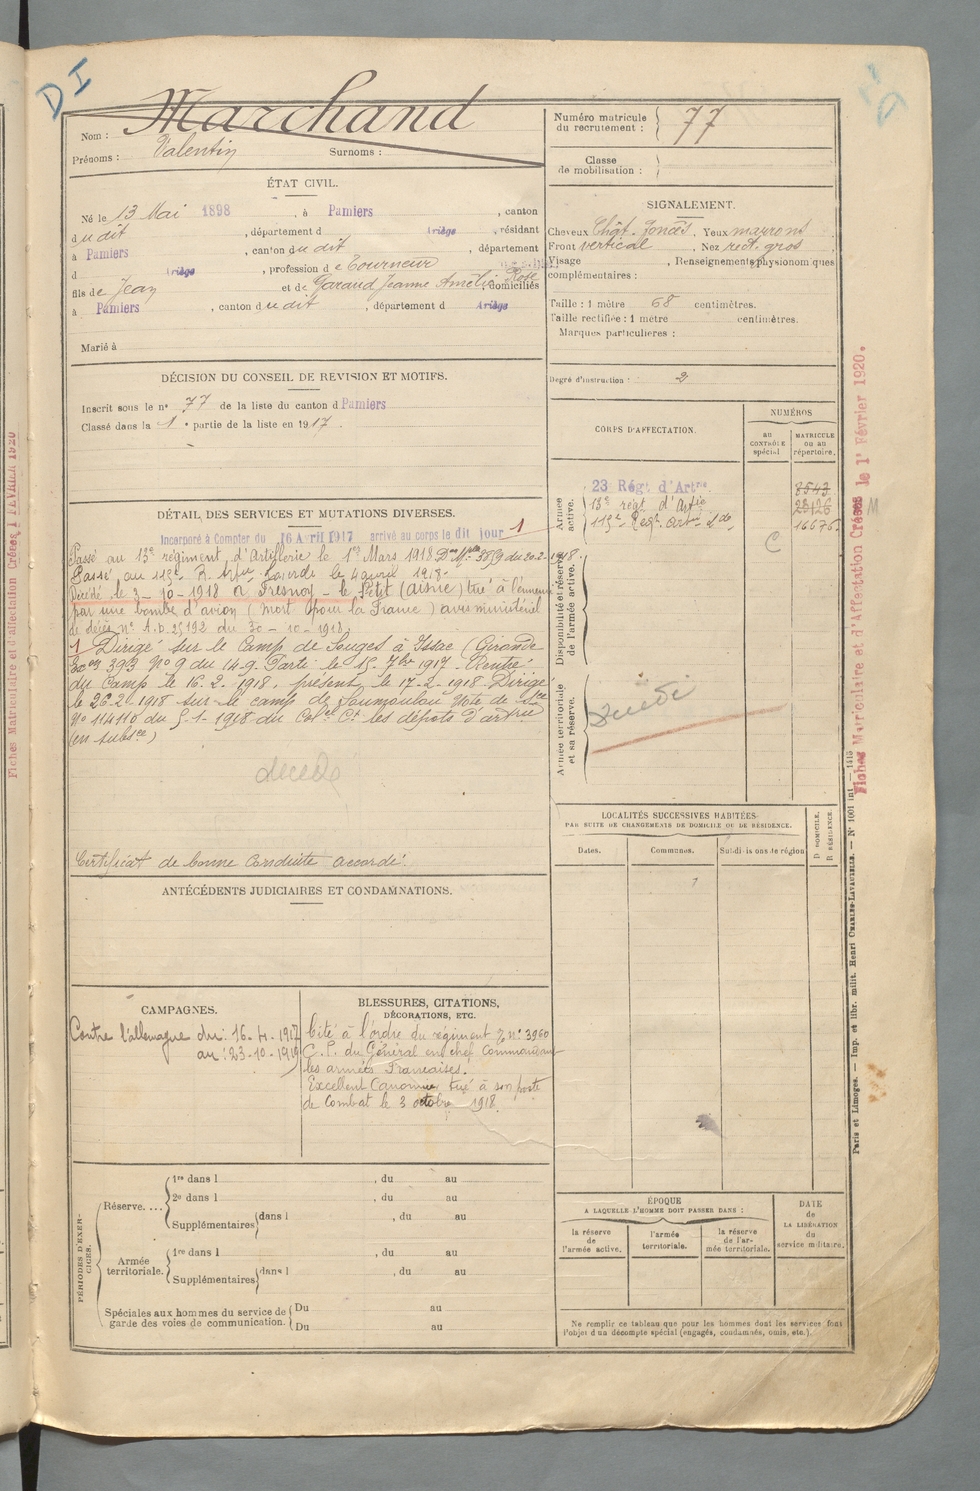 DI
Nom : Marchand
Prénoms : Valentin Surnoms :
Numéro matricule du recrutement : 77
Classe de mobilisation :
ÉTAT CIVIL.
Né le 13 Mai 1898, à Pamiers, canton
dudit, département d Ariège, résidant
à Pamiers, canton dudit, département
d Ariège, profession de Tourneur
fils de Jean et de Garaud Jeanne Amélie Rose domiciliés
à Pamiers, canton dudit, département d Ariège
Marié à
SIGNALEMENT.
Cheveux Chât. foncés. Yeux marrons
Front vertical, Nez rect. gros
Visage, Renseignements physionomiques
complémentaires :
Taille : 1 mètre 68 centimètres.
Taille rectifiée : 1 mètre centimètres.
Marques particulières :
Degré d'instruction : 2
DÉCISION DU CONSEIL DE REVISION ET MOTIFS.
Inscrit sous le n° 77 de la liste du canton d Pamiers
Classé dans la 1e partie de la liste en 1917.
CORPS D'AFFECTATION.
NUMÉROS
au CONTRÔLE spécial
MATRICULE ou au répertoire.
Armée active.
23 Régt d'Artrie 3543
13e régt d'Artie 23126
115e Régt Artie Lde 16676
C
Disponibilité et réserve de l'armée active.
Armée territoriale et sa réserve.
Décédé
DÉTAIL DES SERVICES ET MUTATIONS DIVERSES.
Incorporé à Compter du 16 Avril 1917 arrivé au corps le dit jour 1
Passé au 13e régiment d'Artillerie le 1er Mars 1918 Don Mle 3859 du 20-2-1918.
Passé au 115e R. Artie Lourde le 4 avril 1918.
Décédé le 3-10-1918 à Fresnoy-le-Petit (Aisne) tué à l'ennemi
par une bombe d'avion (Mort pour la France) avis ministériel
de décès n° A.D. 25192 du 30-10-1918.
1 Dirigé sur le Camp de Souges à Issac (Gironde
393 N° 9 du 14-9. Parti le 15 7bre 1917. Rentré
du Camp le 16.2.1918, présent le 17-2-1918. Dirigé
le 26-2-1918 sur le camp de Soumoulou Note de
N° 114116 du 5-1-1918 du Colel Ct les dépôts d'artrie
(en subsce)
décédé
Certificat de bonne conduite accordé.
ANTÉCÉDENTS JUDICIAIRES ET CONDAMNATIONS.
LOCALITÉS SUCCESSIVES HABITÉES
PAR SUITE DE CHANGEMENTS DE DOMICILE OU DE RÉSIDENCE.
Dates. Communes. Subdivisions de région
D DOMICILE. R RÉSIDENCE.
CAMPAGNES.
Contre l'allemagne du : 16-4-1917
au : 23-10-1919
BLESSURES, CITATIONS,
DÉCORATIONS, ETC.
Cité à l'ordre du régiment n° 3960
du Général en chef Commandant
les armées Françaises.
Excellent Canonnier tué à son poste
de Combat le 3 octobre 1918.
PÉRIODES D'EXERCICES.
Réserve....
1re dans l , du au
2e dans l , du au
Supplémentaires dans l , du au
Armée territoriale.
1re dans l , du au
Supplémentaires dans l , du au
Spéciales aux hommes du service de garde des voies de communication.
Du au
Du au
ÉPOQUE
A LAQUELLE L'HOMME DOIT PASSER DANS :
la réserve de l'armée active.
l'armée territoriale.
la réserve de l'armée territoriale.
DATE de LA LIBÉRATION du service militaire.
Ne remplir ce tableau que pour les hommes dont les services font
l'objet d'un décompte spécial (engagés, condamnés, omis, etc.).
Fiches Matriculaire et d'Affectation Créées le 1er Février 1920.
Paris et Limoges. — Imp. et libr. milit. Henri CHARLES-LAVAUZELLE. — N° 1001 int — 1415
Fiches Matriculaire et d'affectation Créées 1 FÉVRIER 1920